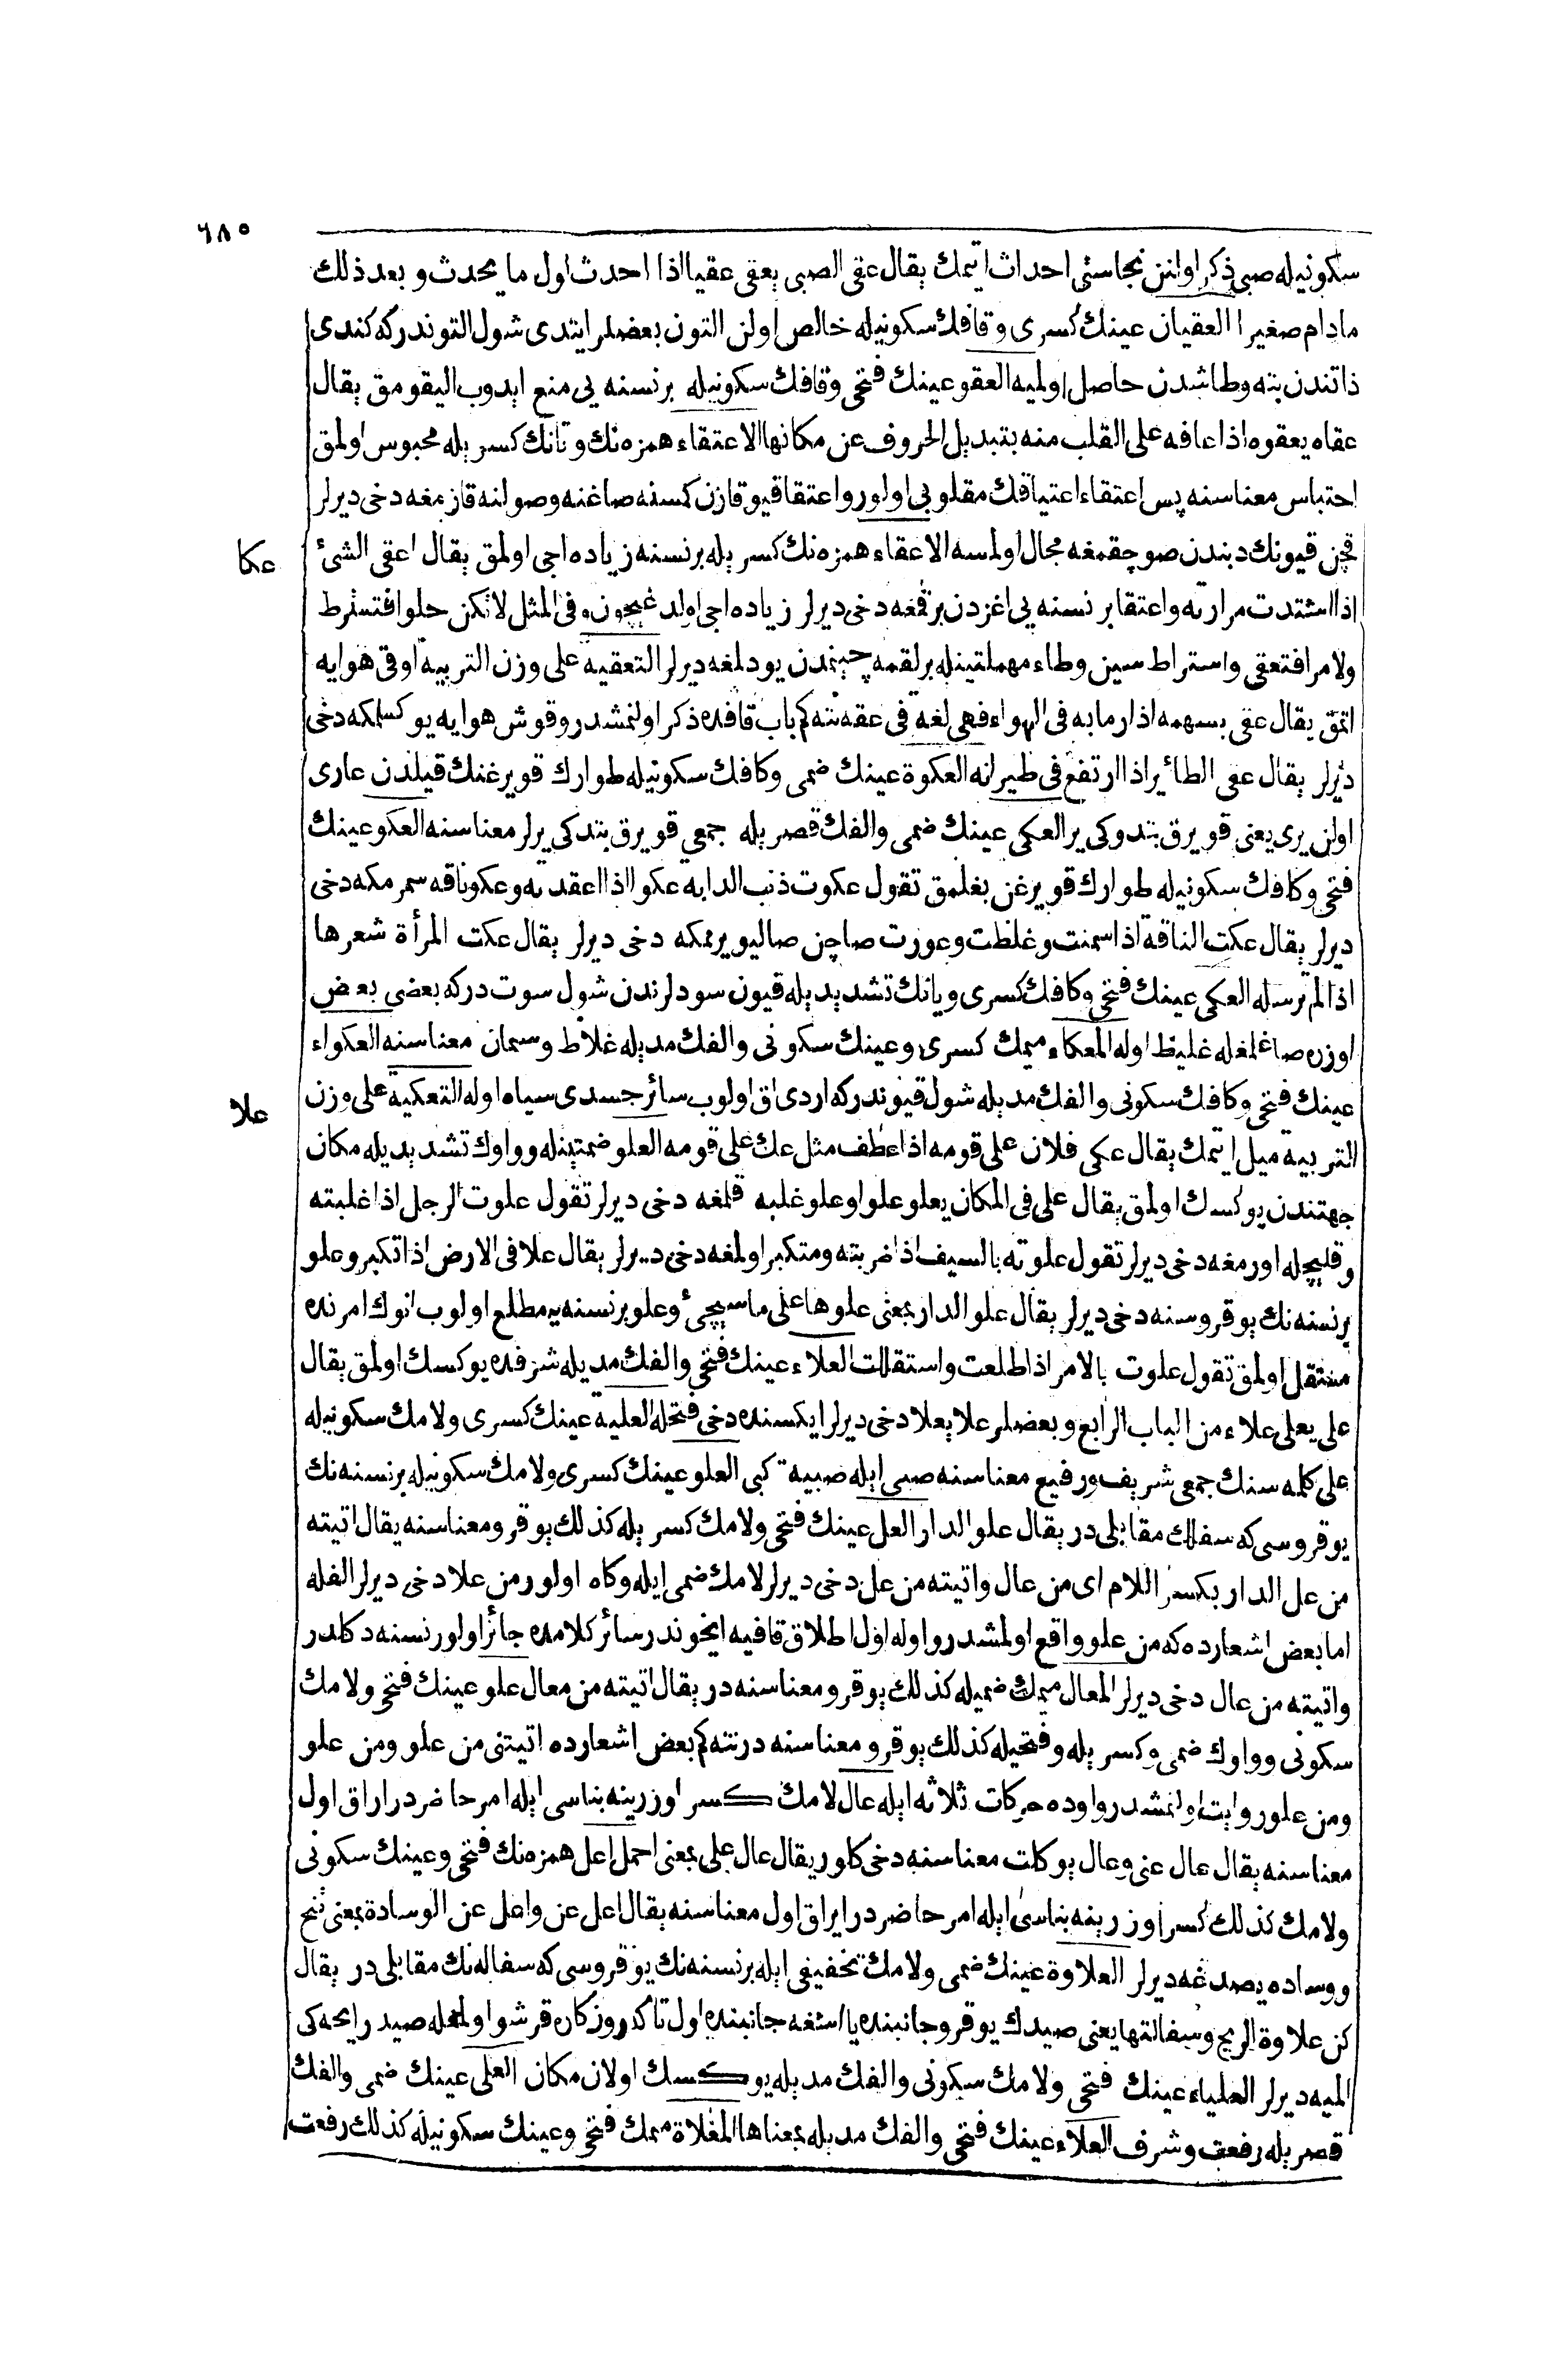 ٦٨٥
سكونيله صبى ذكر اولنن نجاستى احداث اتمك يقال عقى الصبى يعقى عقيا اذا احدث اول ما يحدث و بعد ذلك
مادام صغيرا العقيان عينك كسرى وقافك سكونيله خالص اولن التون بعضلر ايتدى شول التوندركه كندى
ذاتندن بته وطاشدن حاصل اولميه العقو عينك فتحى وقافك سكونيله برنسنه يى منع ايدوب اليقومق يقال
عقاه يعقوه اذا عافه على القلب منه بتبديل الحروف عن مكانها الاعتقاء همزه نك وتانك كسر يله محبوس اولمق
احتباس معناسنه پس اعتقاء اعتياقك مقلوبى اولور واعتقا قيو قازن كمسنه صاغنه وصولنه قازمغه دخى ديرلر
عكا
قچن قيونك دبندن صو چقمغه مجال اولمسه الاعقاء همزه نك كسر يله برنسنه زياده اجى اولمق يقال اعقى الشئ
اذا اشتدت مرارته واعتقا برنسنه يى اغزدن برقمغه دخى ديرلر زياده اجى اولدغيچون وفى المثل لا تكن حلوا فتسترط
ولا مرا فتعقى واستراط سين وطاء مهملتينله برلقمه چيندن يودلمغه ديرلر التعقيه على وزن التربية اوقى هوايه
اتمق يقال عقى بسهمه اذا رما به فى الهواء فهى لغة فى عقه نته كم باب قافده ذكر اولنمشدر وقوش هوايه يوكسلمكه دخى
ديرلر يقال عقى الطائر اذا ارتفع فى طيرانه العكوة عينك ضمى وكافك سكونيله طوارك قويرغنك قيلدن عارى
اولن يرى يعنى قويرق بتدوكى ير العكى عينك ضمى والفك قصر يله جمعى قويرق بتدكى يرلر معناسنه العكو عينك
فتحى وكافك سكونيله طوارك قويرغن بغلمق تقول عكوت ذنب الدابه عكوا اذا اعقدته وعكو ناقه سمرمكه دخى
ديرلر يقال عكت الناقة اذا سمنت وغلظت وعورت صاچن صاليويرمكه دخى ديرلر يقال عكت المرأة شعرها
اذا لم ترسله العكى عينك فتحى وكافك كسرى ويانك تشديديله قيون سودلرندن شول سوت دركه بعضى بعض
اوزره صاغلمغله غليظ اوله المعكاء ميمك كسرى وعينك سكونى والفك مديله غلاظ وسمان معناسنه العكواء
علا
عينك فتحى وكافك سكونى والفك مديله شول قيوندركه اردى اق اولوب سائر جسدى سياه اوله التعكية على وزن
التربيه ميل ايتمك يقال عكى فلان على قومه اذا عطف مثل عك على قومه العلو ضمتينله وواوك تشديديله مكان
جهتندن يوكسك اولمق يقال على فى المكان يعلو علوا وعلو غلبه قلمغه دخى ديرلر تقول علوت الرجل اذا غلبته
وقليچله اورمغه دخى ديرلر تقول علوته بالسيف اذا ضربته ومتكبر اولمغه دخى ديرلر يقال علا فى الارض اذا تكبر وعلو
برنسنه نك يوقروسنه دخى ديرلر يقال علو الدار بمعنى علوها على ما سيجئ وعلو برنسنه يه مطلع اولوب انوك امرنده
مستقل اولمق تقول علوت بالامر اذا طلعت واستقللت العلاء عينك فتحى والفك مديله شرفده يوكسك اولمق يقال
على يعلى علاء من الباب الرابع وبعضلر علا يعلا دخى ديرلر ايكسنده دخى فتحله العلية عينك كسرى ولامك سكونيله
على كلمه سنك جمعى شريف ورفيع معناسنه صبى ايله صبيه كبى العلو عينك كسرى ولامك سكونيله برنسنه نك
يوقروسى كه سفلك مقابلى در يقال علو الدار العل عينك فتحى ولامك كسر يله كذلك يوقرو معناسنه يقال اتيته
من عل الدار بكسر اللام اى من عال واتيته من عل دخى ديرلر لامك ضمى ايله وكاه اولور من علا دخى ديرلر الفله
اما بعض اشعارده كه من علو واقع اولمشدر واو له اول اطلاق قافيه ايچوندر سائر كلامده جائز اولور نسنه دكلدر
واتيته من عال دخى ديرلر المعال ميمك ضميله كذلك يوقرو معناسنه در يقال اتيته من معال علو عينك فتحى ولامك
سكونى وواوك ضمى وكسر يله وفتحيله كذلك يوقرو معناسنه در نته كم بعض اشعارده اتيتنى من علو ومن علو
ومن علو روايت اولنمشدر واوده حركات ثلاثه ايله عال لامك كسر اوزرينه بناسى ايله امر حاضر در اراق اول
معناسنه يقال عال عنى وعال يوكلت معناسنه دخى كلور يقال عال على بمعنى احمل اعل همزه نك فتحى وعينك سكونى
ولامك كذلك كسر اوزرينه بناسى ايله امر حاضر در ايراق اول معناسنه يقال اعل عن واعل عن الوسادة بمعنى تنح
ووساده يصدغه ديرلر العلاوة عينك ضمى ولامك تخفيفى ايله برنسنه نك يوقروسى كه سفاله نك مقابلى در يقال
كن علاوة الريح وسفالتها يعنى صيدك يوقرو جانبنده يا اشغه جانبنده اول تا كه روزكاره قرشو اولمغله صيد رايحه كى
الميه ديرلر العلياء عينك فتحى ولامك سكونى والفك مديله يوكسك اولان مكان العلى عينك ضمى والفك
قصر يله رفعت وشرف العلاء عينك فتحى والفك مديله بمعناها المعلاة ميمك فتحى وعينك سكونيله كذلك رفعت